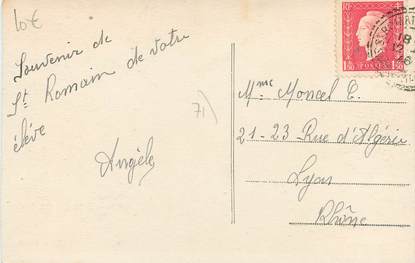 10€
Souvenir de
St Romain de votre
élève
Angèle
71)
Mme Moncel C.
21-23 Rue d'Algérie
Lyon
Rhône
RF